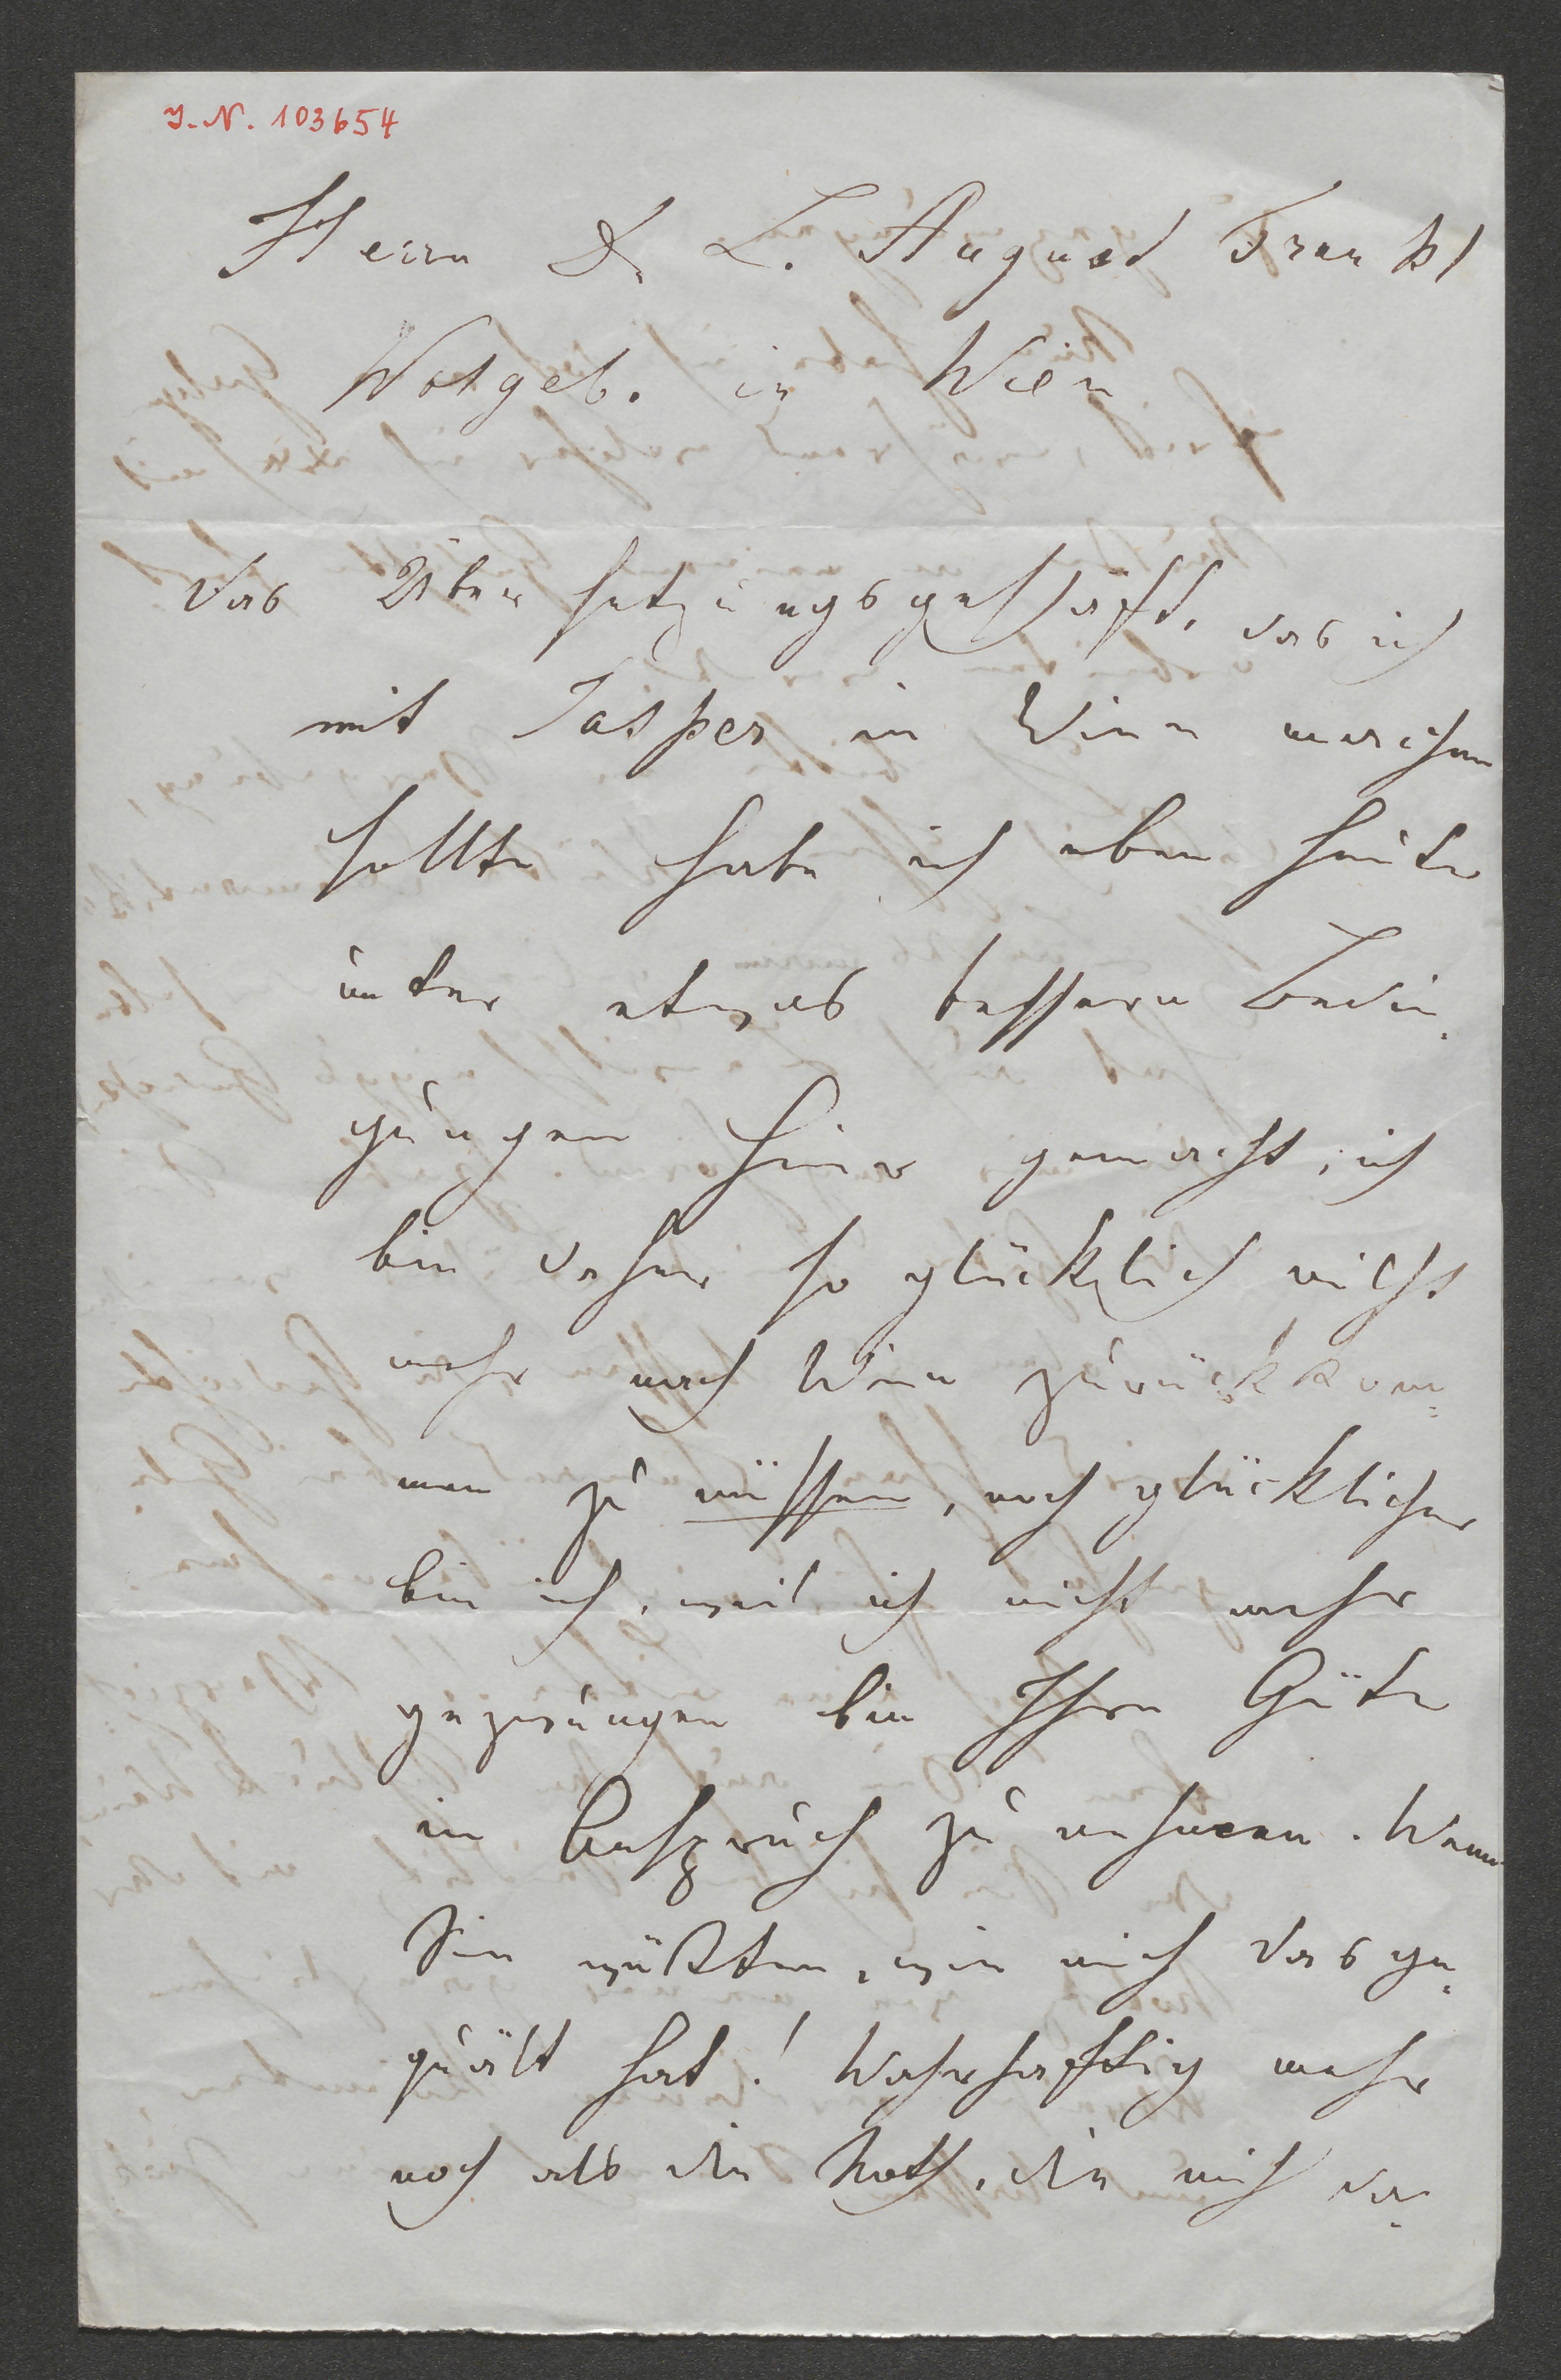 J.-N. 103654
Herrn Dr L. August Frankl
Wolgeb. in Wien
Das Übersetzungsgeschäft, das ich
mit Jasper in Wien machen
sollte habe ich eben heute
unter etwas bessern Bedin-
gungen hier gemacht, ich
bin daher so glücklich nicht
mehr nach Wien zurückkom-
men zu müssen, noch glücklicher
bin ich, weil ich nicht mehr
gezwungen bin Ihre Güte
in Anspruch zu nehmen. Wenn
Sie wüßten, wie mich das ge-
quält hat! Wahrhaftig mehr
noch als die Noth, die mich da-